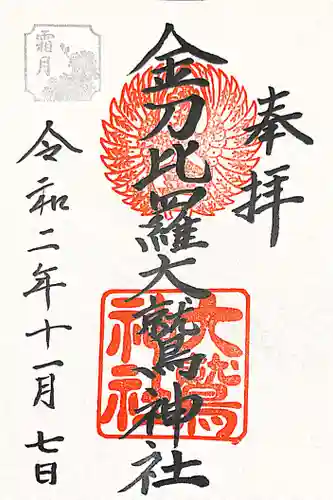 奉拝
金刀比羅大鷲神社
大鷲
神社
霜月
令和二年十一月七日